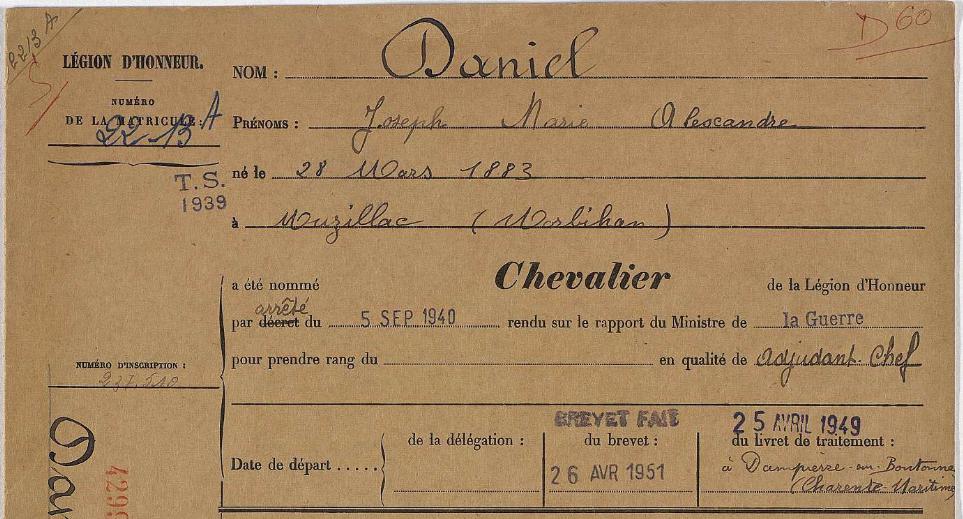 2213 A
D 60
LÉGION D'HONNEUR.
NUMÉRO
DE LA MATRICULE:
22-13 A
T. S.
1939
NOM : Daniel
PRÉNOMS : Joseph Marie Alexandre
né le 28 Mars 1883
à Muzillac (Morbihan)
a été nommé Chevalier de la Légion d'Honneur
arrêté
par décret du 5 SEP 1940 rendu sur le rapport du Ministre de la Guerre
pour prendre rang du en qualité de Adjudant-Chef
NUMÉRO D'INSCRIPTION :
237.510
BREVET FAIT 25 AVRIL 1949
de la délégation : du brevet : du livret de traitement :
Date de départ ..... 26 AVR 1951 à Dampierre-sur-Boutonne
(Charente-Maritime
Dan
4299